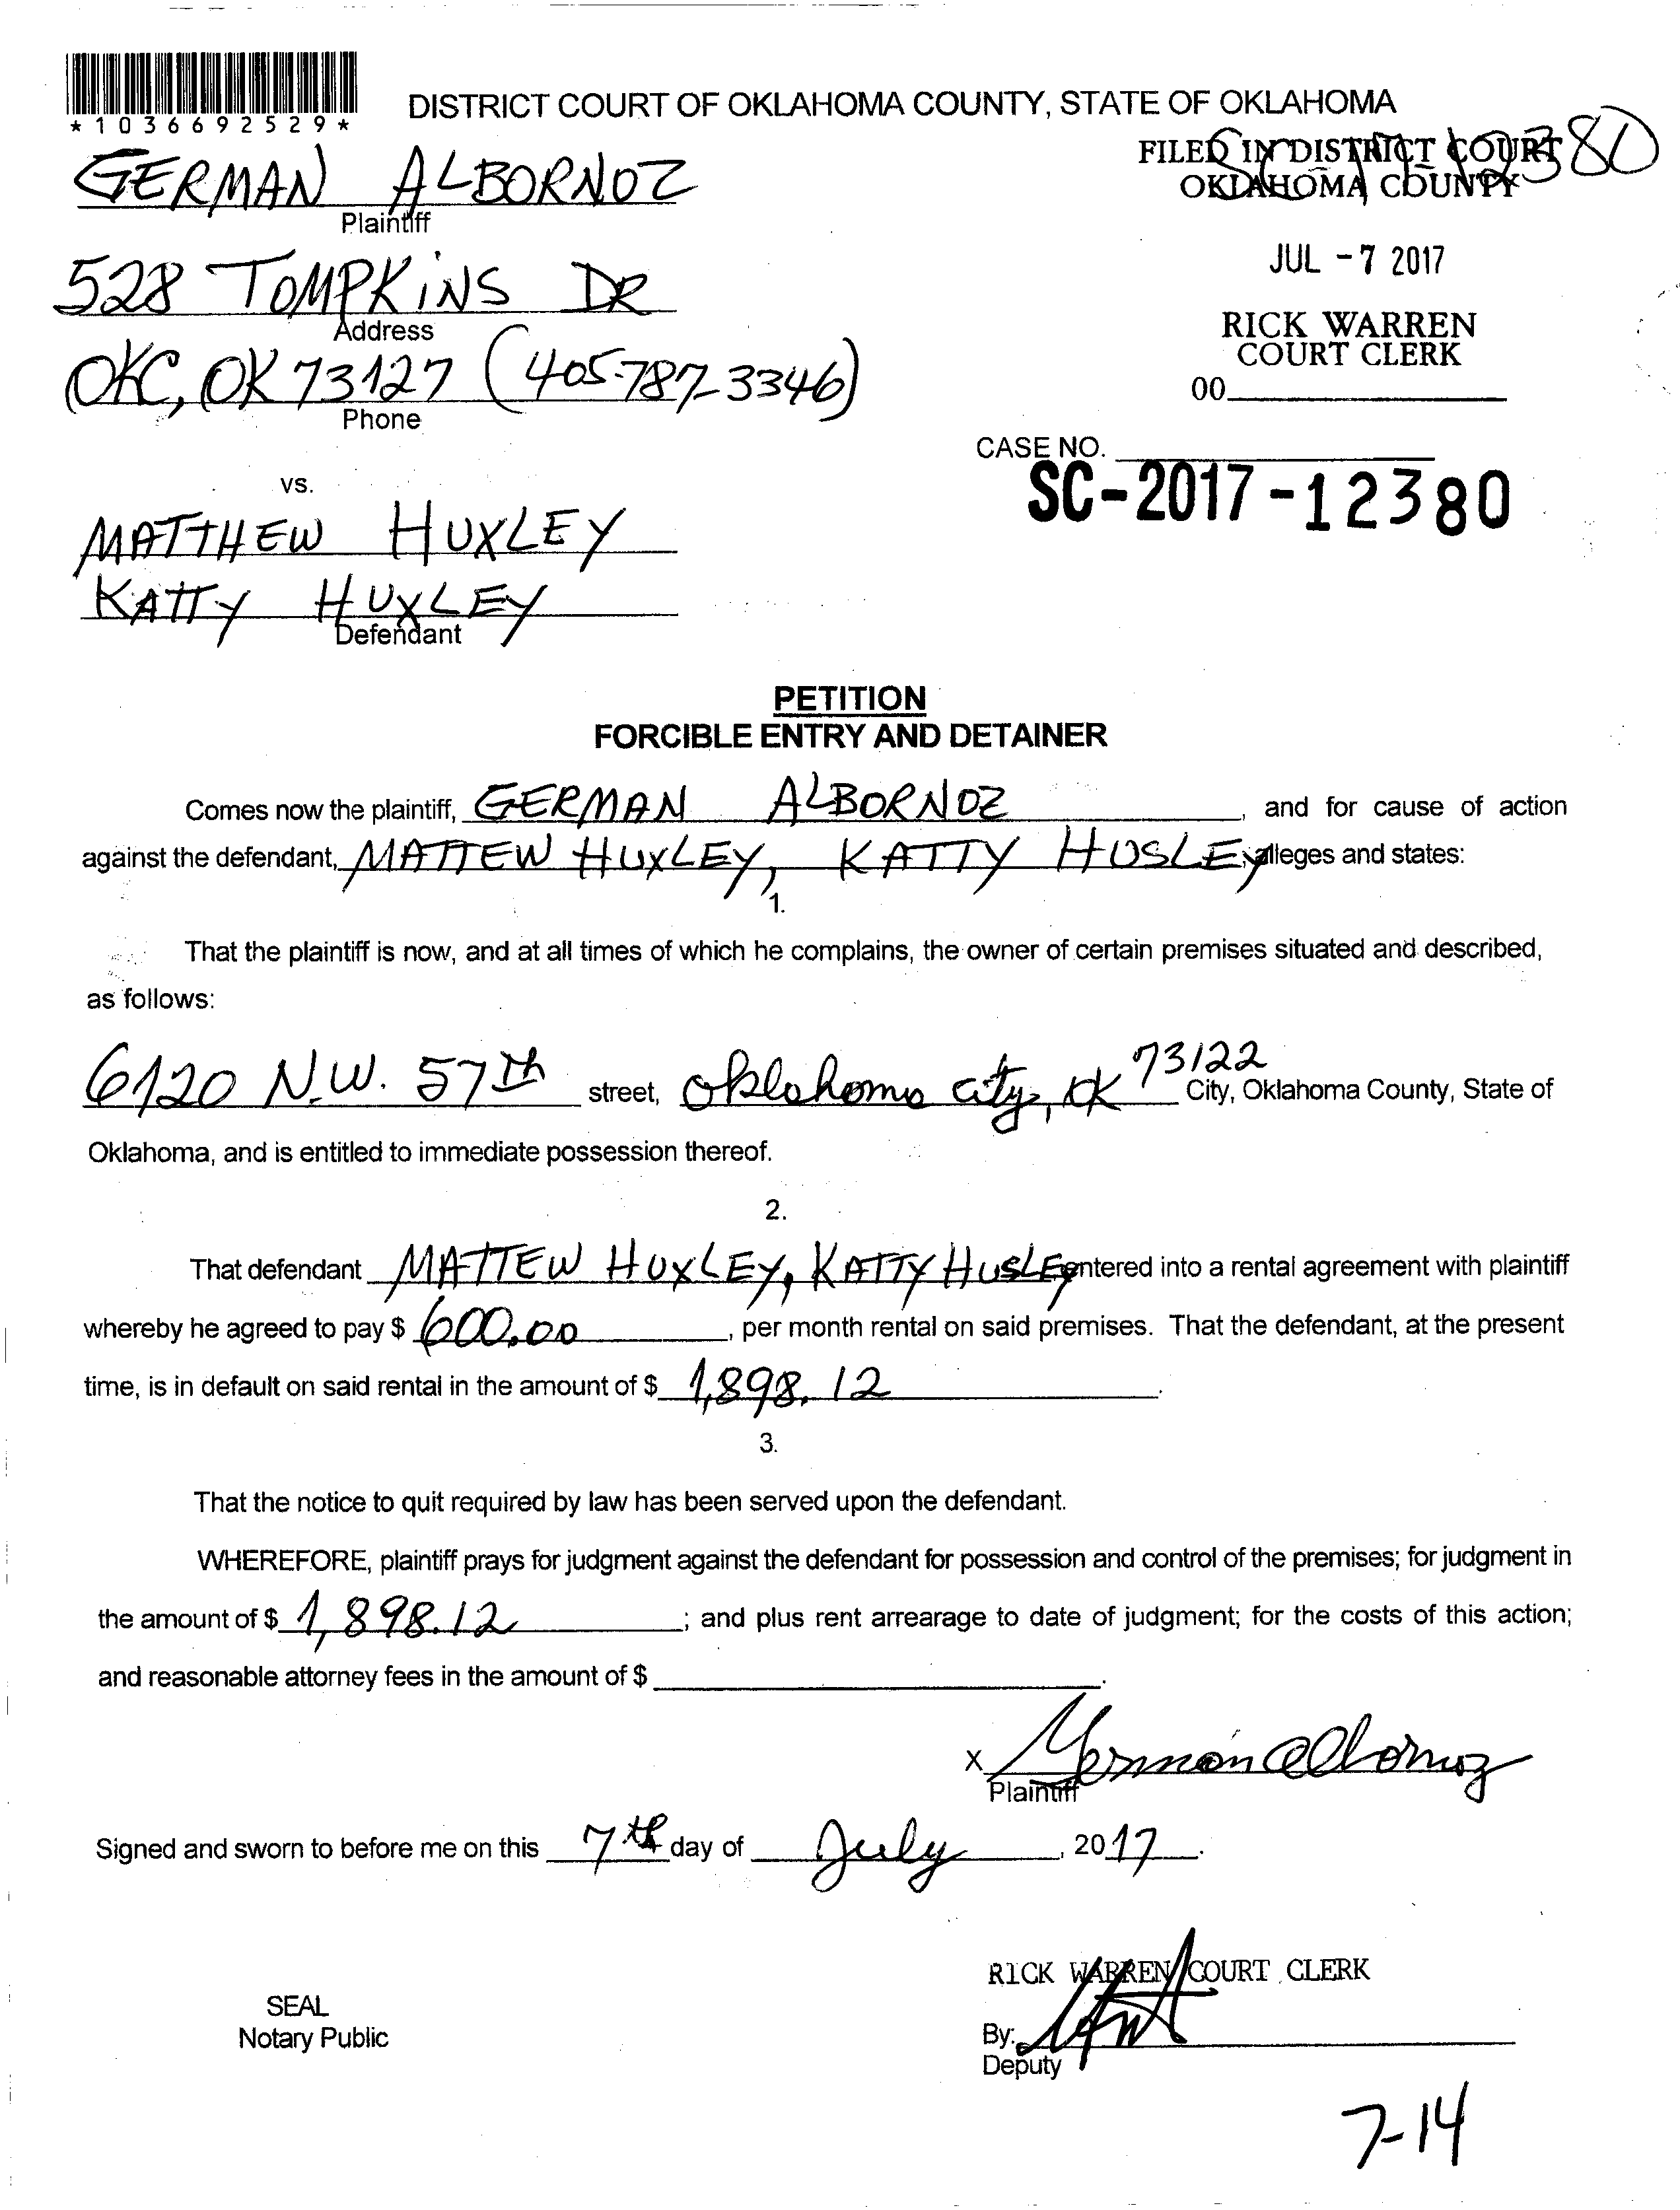 *1036692529*
DISTRICT COURT OF OKLAHOMA COUNTY, STATE OF OKLAHOMA
FILED IN DISTRICT COURT
OKLAHOMA COUNTY
GERMAN ALBORNOZ
Plaintiff
JUL -7 2017
528 TOMPKINS DR
Address
RICK WARREN
COURT CLERK
OKC, OK 73127 (405-787-3346)
Phone
00
CASE NO.
SC-2017-12380
vs.
MATTHEW HUXLEY
KATTY HUXLEY
Defendant
PETITION
FORCIBLE ENTRY AND DETAINER
Comes now the plaintiff, GERMAN ALBORNOZ, and for cause of action
against the defendant, MATTEW HUXLEY, KATTY HUSLEY, alleges and states:
1.
That the plaintiff is now, and at all times of which he complains, the owner of certain premises situated and described,
as follows:
6120 N.W. 57th street, Oklahoma city, OK 73122 City, Oklahoma County, State of
Oklahoma, and is entitled to immediate possession thereof.
2.
That defendant MATTEW HUXLEY, KATTY HUSLEY entered into a rental agreement with plaintiff
whereby he agreed to pay $ 600.00, per month rental on said premises. That the defendant, at the present
time, is in default on said rental in the amount of $ 1,898.12.
3.
That the notice to quit required by law has been served upon the defendant.
WHEREFORE, plaintiff prays for judgment against the defendant for possession and control of the premises; for judgment in
the amount of $ 1,898.12; and plus rent arrearage to date of judgment; for the costs of this action;
and reasonable attorney fees in the amount of $ .
X German Albornoz
Plaintiff
Signed and sworn to before me on this 7th day of July, 2017.
RICK WARREN COURT CLERK
SEAL
Notary Public
By:
Deputy
7-14